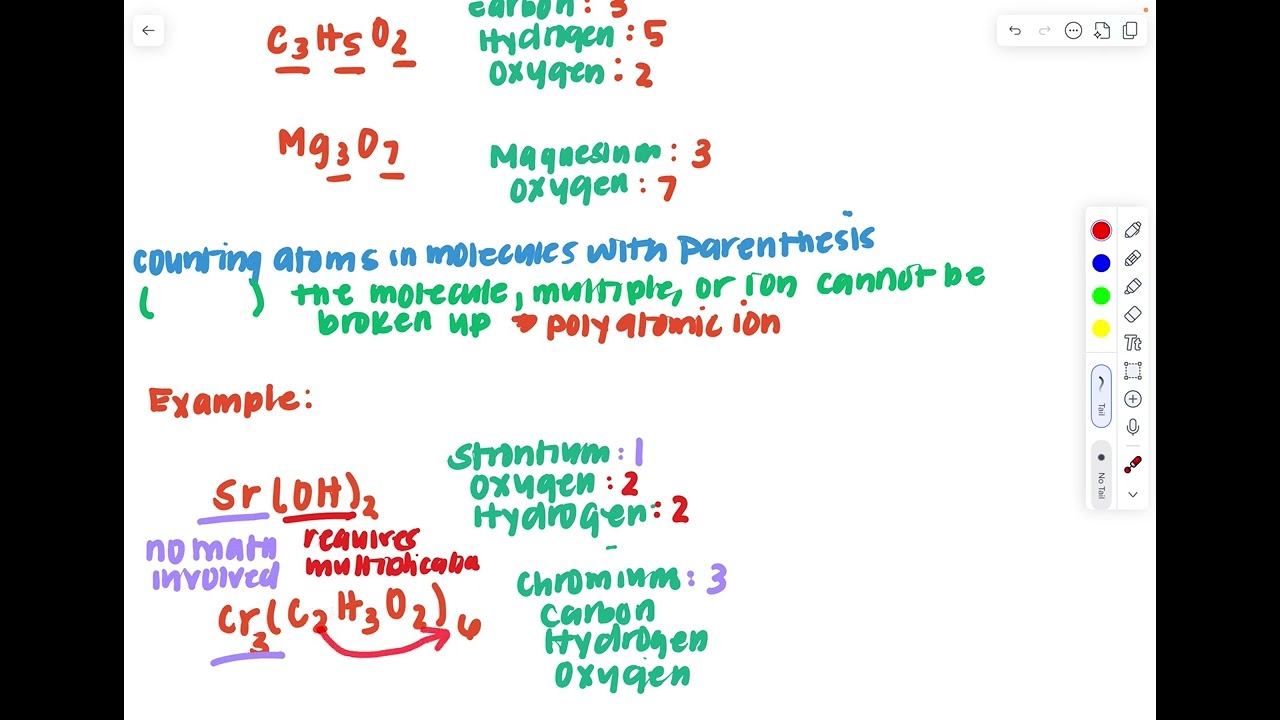 carbon : 3
C3H5O2
Hydrogen : 5
Oxygen : 2
Mg3O7
Magnesium : 3
Oxygen : 7
counting atoms in molecules with Parenthesis
( ) the molecule, multiple, or ion cannot be
broken up → polyatomic ion
Example:
Strontium : 1
Sr(OH)2
Oxygen : 2
Hydrogen : 2
no math
involved
requires
Chromium : 3
Cr3(C2H3O2)6
Carbon
Hydrogen
Oxygen
Tt
Tail
No Tail